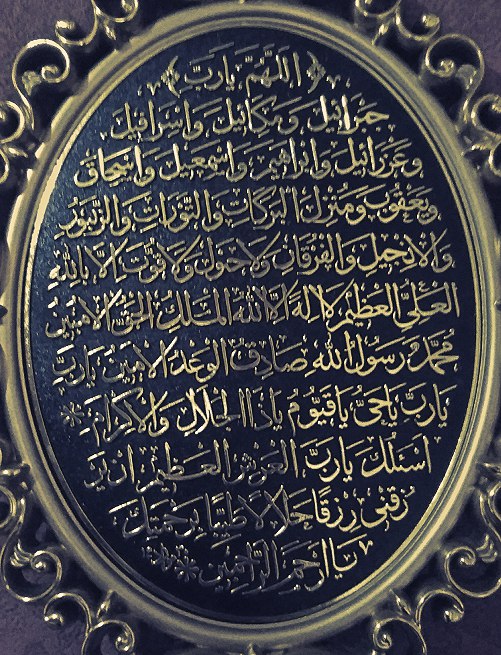 ﴿ اَللَّهُمَّ يَارَبَّ ﴾
جَبْرَائِيلَ وَمِيكَائِيلَ وَاِسْرَافِيلَ
وَعَزْرَائِيلَ وَاِبْرَاهِيمَ وَاِسْمَعِيلَ وَاِسْحَاقَ
وَيَعْقُوبَ وَمُنْزِلَ الْبَرَكَاتِ وَالتَّوْرَاتِ وَالزَّبُورِ
وَالْاِنْجِيلِ وَالْفُرْقَانِ وَلَاحَوْلَ وَلَاقُوَّتَ اِلَّا بِاللهِ
الْعَلِيِّ الْعَظِيمِ لَااِلَهَ اِلَّا اللهُ الْمَلِكُ الْحَقُّ الْمُبِينُ
مُحَمَّدٌ رَسُولُ اللهِ صَادِقُ الْوَعْدِ الْاَمِينُ يَارَبِّ
يَارَبِّ يَاحَيُّ يَاقَيُّومُ يَاذَاالْجَلَالِ وَالْاِكْرَامِ *
اَسْئَلُكَ يَارَبَّ الْعَرْشِ الْعَظِيمِ اَنْ يَرْ
زُقَنِى رِزْقًا حَلَالًا طَيِّبًا بِرَحْمَتِكَ
يَااَرْحَمَ الرَّاحِمِينَ ***